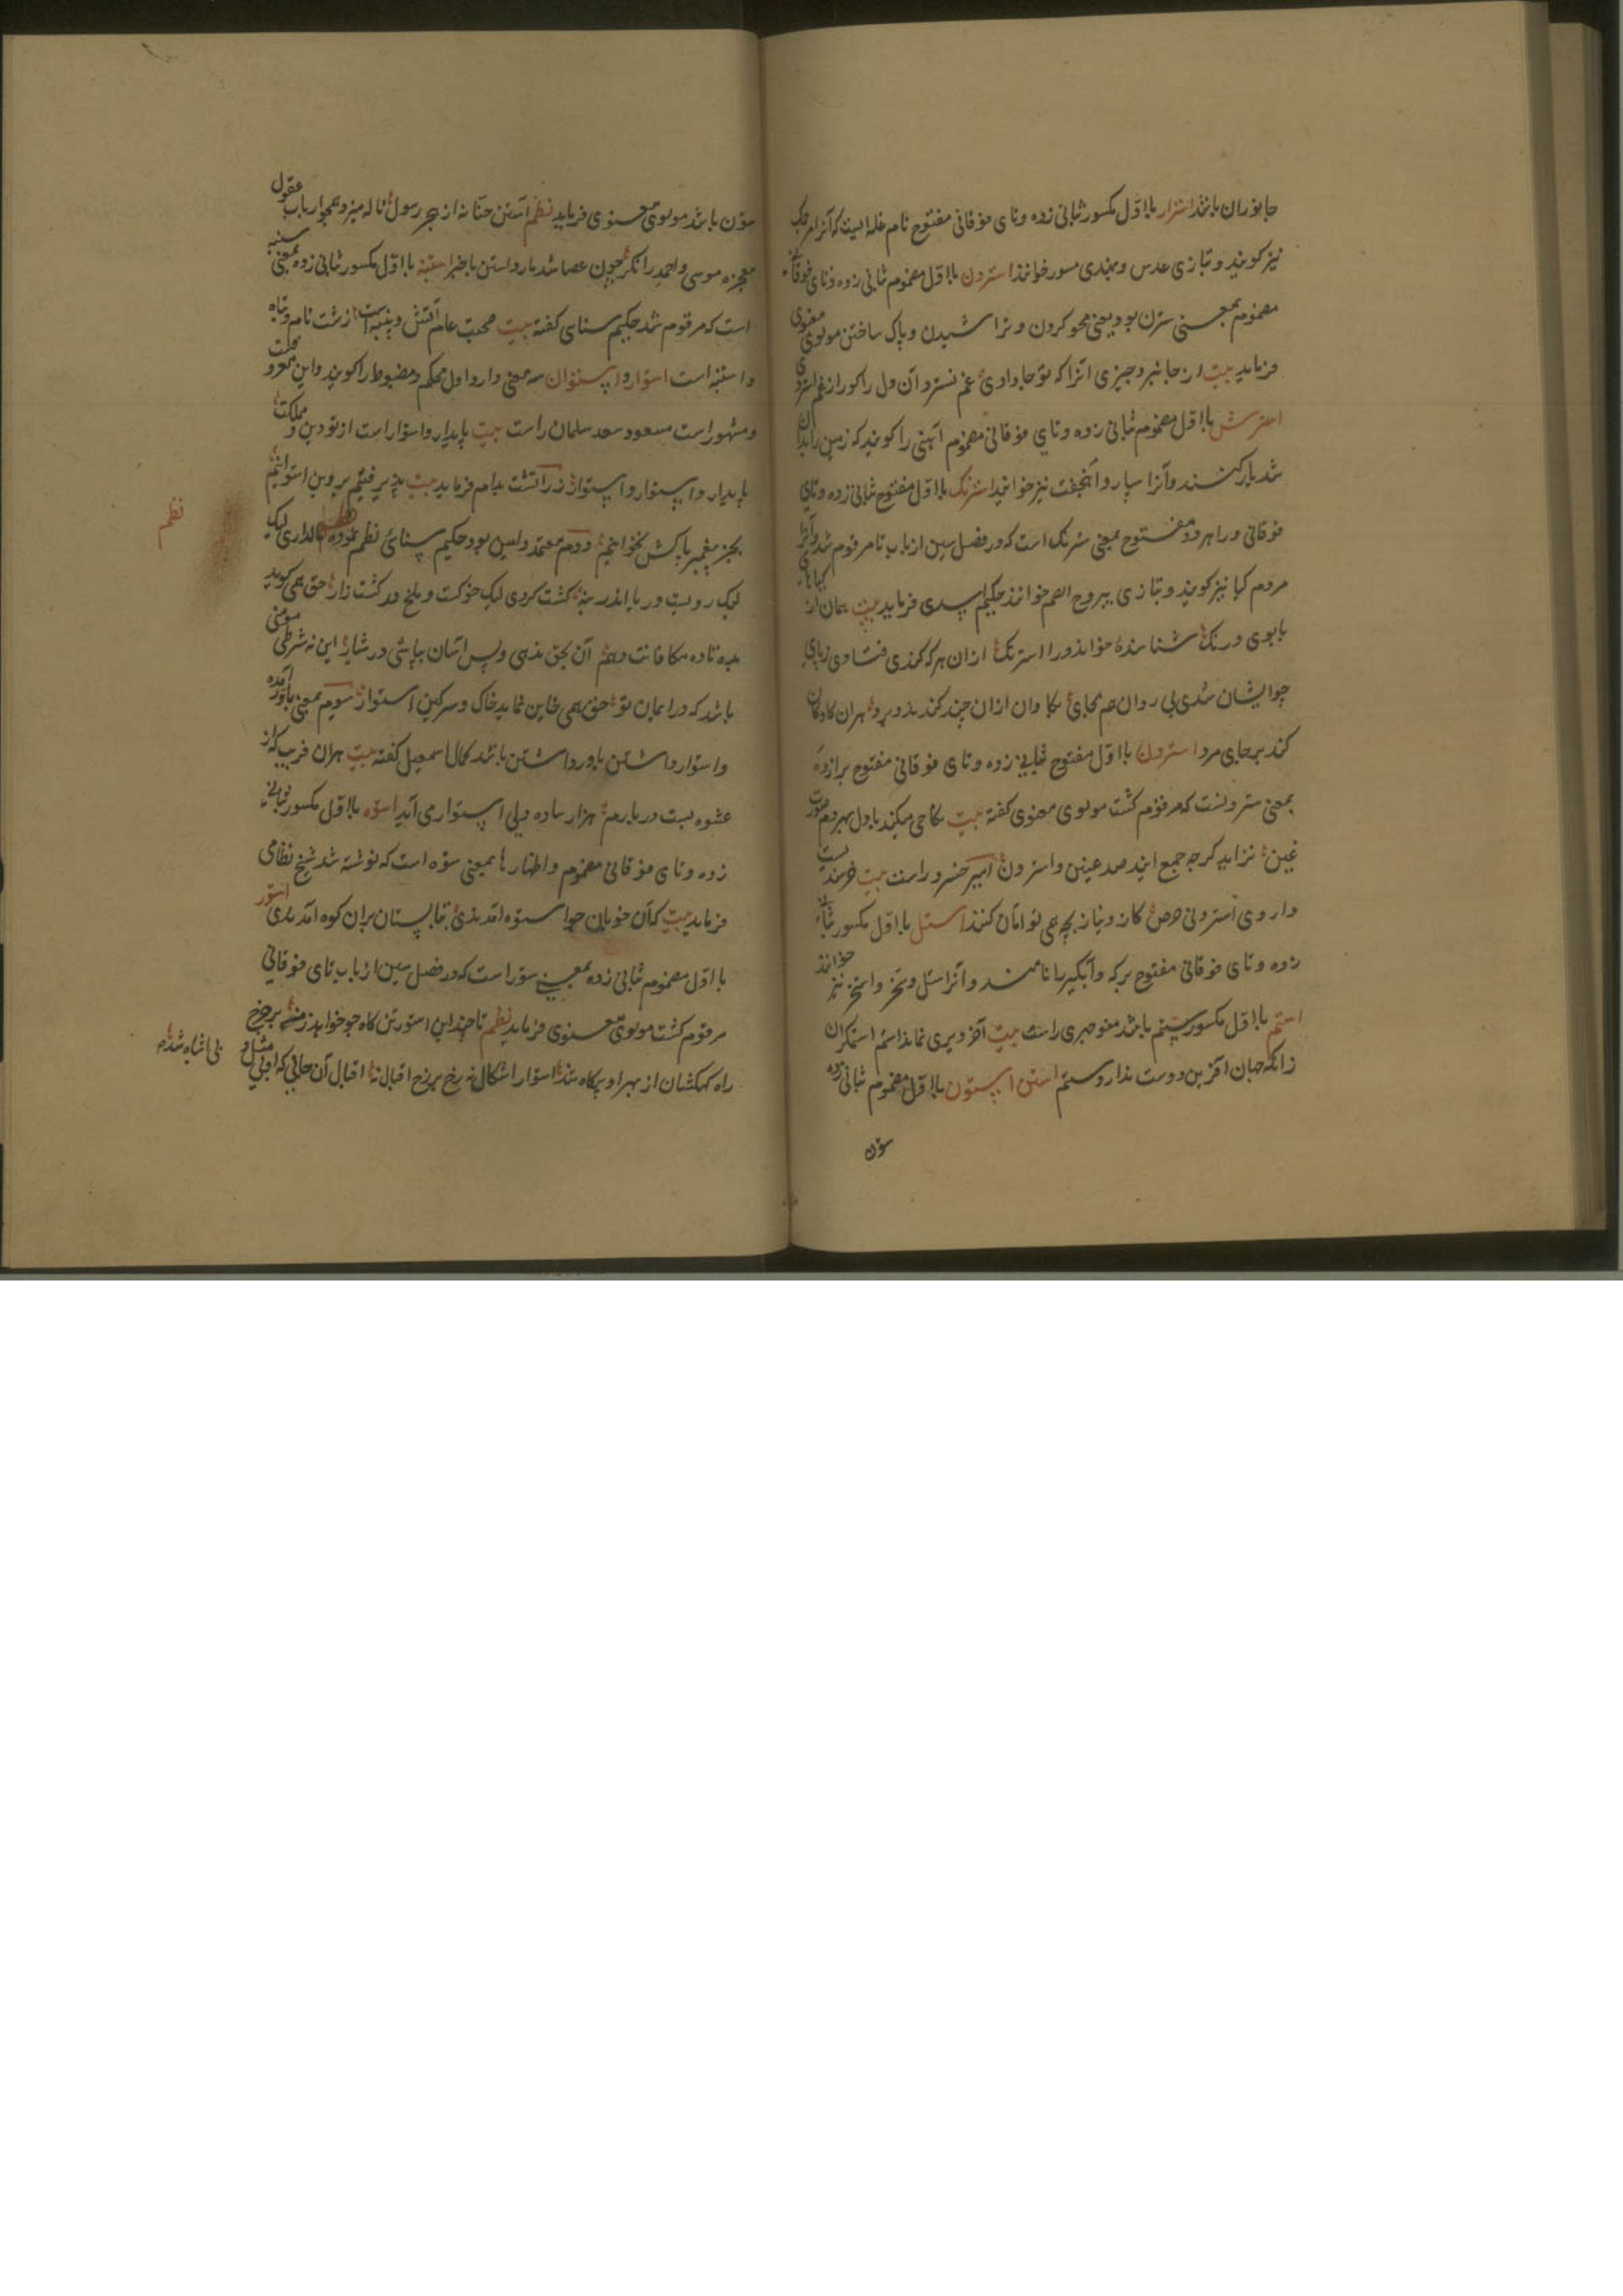 جانوران باشد استرار بااول مکسور ثانی زده و تای فوقانی مفتوح نام غله ایست که آنرا مرجک
نیز گویند و بتازی عدس و بهندی مسور خوانند استردن بااول مضموم ثانی زده و تای فوقانی
مضموم بمعنی سترن بود یعنی محو کردن و تراشیدن و پاک ساختن مولوی معنوی
فرماید بیت از جانبر و چیزی آنرا که تو جا دادی غم نسترد آن دل را کو را ز غم استردی
استرش بااول مضموم ثانی زده و تای فوقانی مضموم آهنی را گویند که زمین را بدان
شدیار کنند و آنرا سپار و آنجفت نیز خوانند استرنگ بااول مفتوح ثانی زده و تای
فوقانی و را هر دو مفتوح بمعنی سترنگ است که در فصل سین از باب تا مرقوم شد و آنرا
مردم گیا نیز گویند و بتازی یبروح الصنم خوانند حکیم اسدی فرماید بیت همان از گیاهای
با بوی و رنگ شناسنده خواند ورا استرنگ از آن هر که کندی فتادی ز پای
چو ایشان شدی بی روان هم بجای بگاوان ازان چند کندند و برد هران گاو کان
کند بر جای مرد استرون بااول مفتوح بثانی زده و تای فوقانی مفتوح برا زده
بمعنی سترونست که مرقوم گشت مولوی معنوی گفته بیت نکاحی میکند با دل بهر دم صورت
غین نزاید گرچه جمع ایند صد عینن و استرون امیر خسرو راست بیت خرسند نیست
داروی استرونی حرص کاز و نیاز بچه می توامان کنند استل بااول مکسور ثانی
زده و تای فوقانی مفتوح برکه و آبگیر را نامند و آنرا ستل و ستخر و استخر نیز خوانند
استم بااول مکسور ستم باشد منوچهری راست بیت آخر دیری نماند استم استمگران
زانکه جهان آفرین دوست ندارد ستم استن استون بااول مضموم ثانی زده
ستون
ستون باشد مولوی معنوی فرماید نظم استن حنانه از هجر رسول ناله میزد همچو ارباب عقول
معجزه موسی و احمد را نگر چون عصا شد مار و استن با خبر استنبه بااول مکسور ثانی زده بمعنی ستنبه
است که مرقوم شد حکیم سنائی گفته بیت صحبت عام آتش و پنبه است زشت نام و تباه
و استنبه است استوار و استوان سه معنی دارد اول محکم و مضبوط را گویند و این معروف
و مشهور است مسعود سعد سلمان راست بیت پایدار و استوار است از تو دین و مملکت
پایدار و استوار و استوار زراتشت بهرام فرماید بیت پذیرفتیم بر دین استوانیم
بجز پیغمبر پاکش نخوانیم دویم معتمد و امین بود حکیم سنائی نظم نموده مالداری لیک
لیک رویت در باندرنه کشت کردی لیک خوکست و ملخ در کشت زار حق همی گوید
بده تاده مکافاتت دهم آن بحق ندهی و پس آسان بپاشی در شیار این نه شرط مؤمنی
باشد که در ایمان تو حق همی خاین نماید خاک و سرگین استوار سیوم بمعنی باور آمده
و استوار داشتن باور داشتن باشد کمال اسمعیل گفته بیت هران فریب که از
عشوه بست در بارم هزار ساده دلی استوار می آید استوه بااول مکسور ثانی
زده و تای فوقانی مضموم و اظهار ها بمعنی ستوه است که نوشته شد شیخ نظامی
فرماید بیت که آن خوبان چو استوه آمدندی بتابستان بران کوه آمدندی استور
بااول مضموم ثانی زده بمعنی ستور است که در فصل سین از باب تای فوقانی
مرقوم گشت مولوی معنوی فرماید نظم تا چند این استور تن کاه جو خواهد ز من بر چرخ
راه کهکشان از بهر او پرکاه شد استوار اشکال نه رخ برزخ اقبال نه اقبال آن جانی که او بی مثل و
نظم
بی اشباه شد